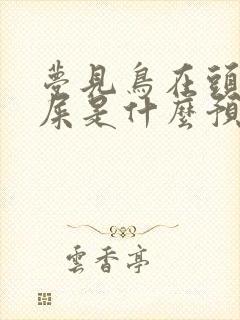 夢見鳥在頭
屎是什麼預
雲香亭